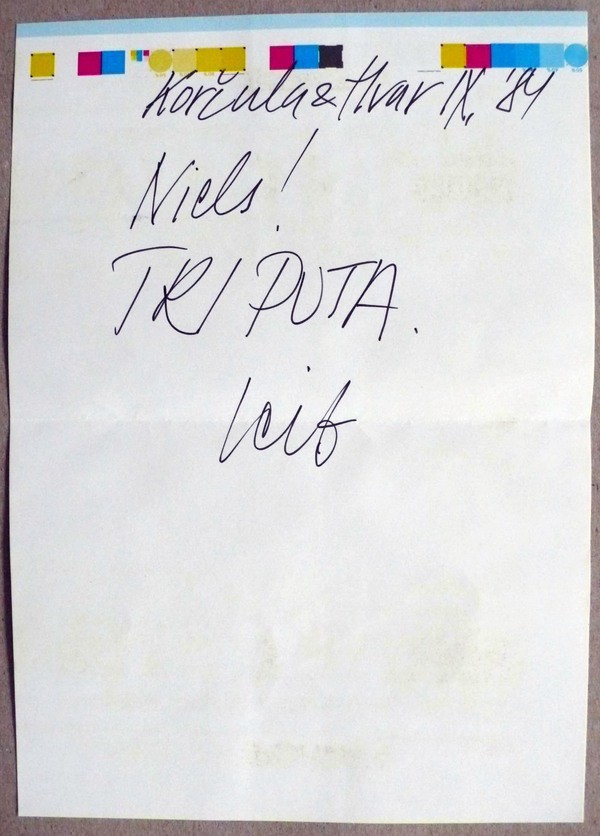 Korčula & Hvar IX, '84
Niels!
TRI PUTA.
Leif